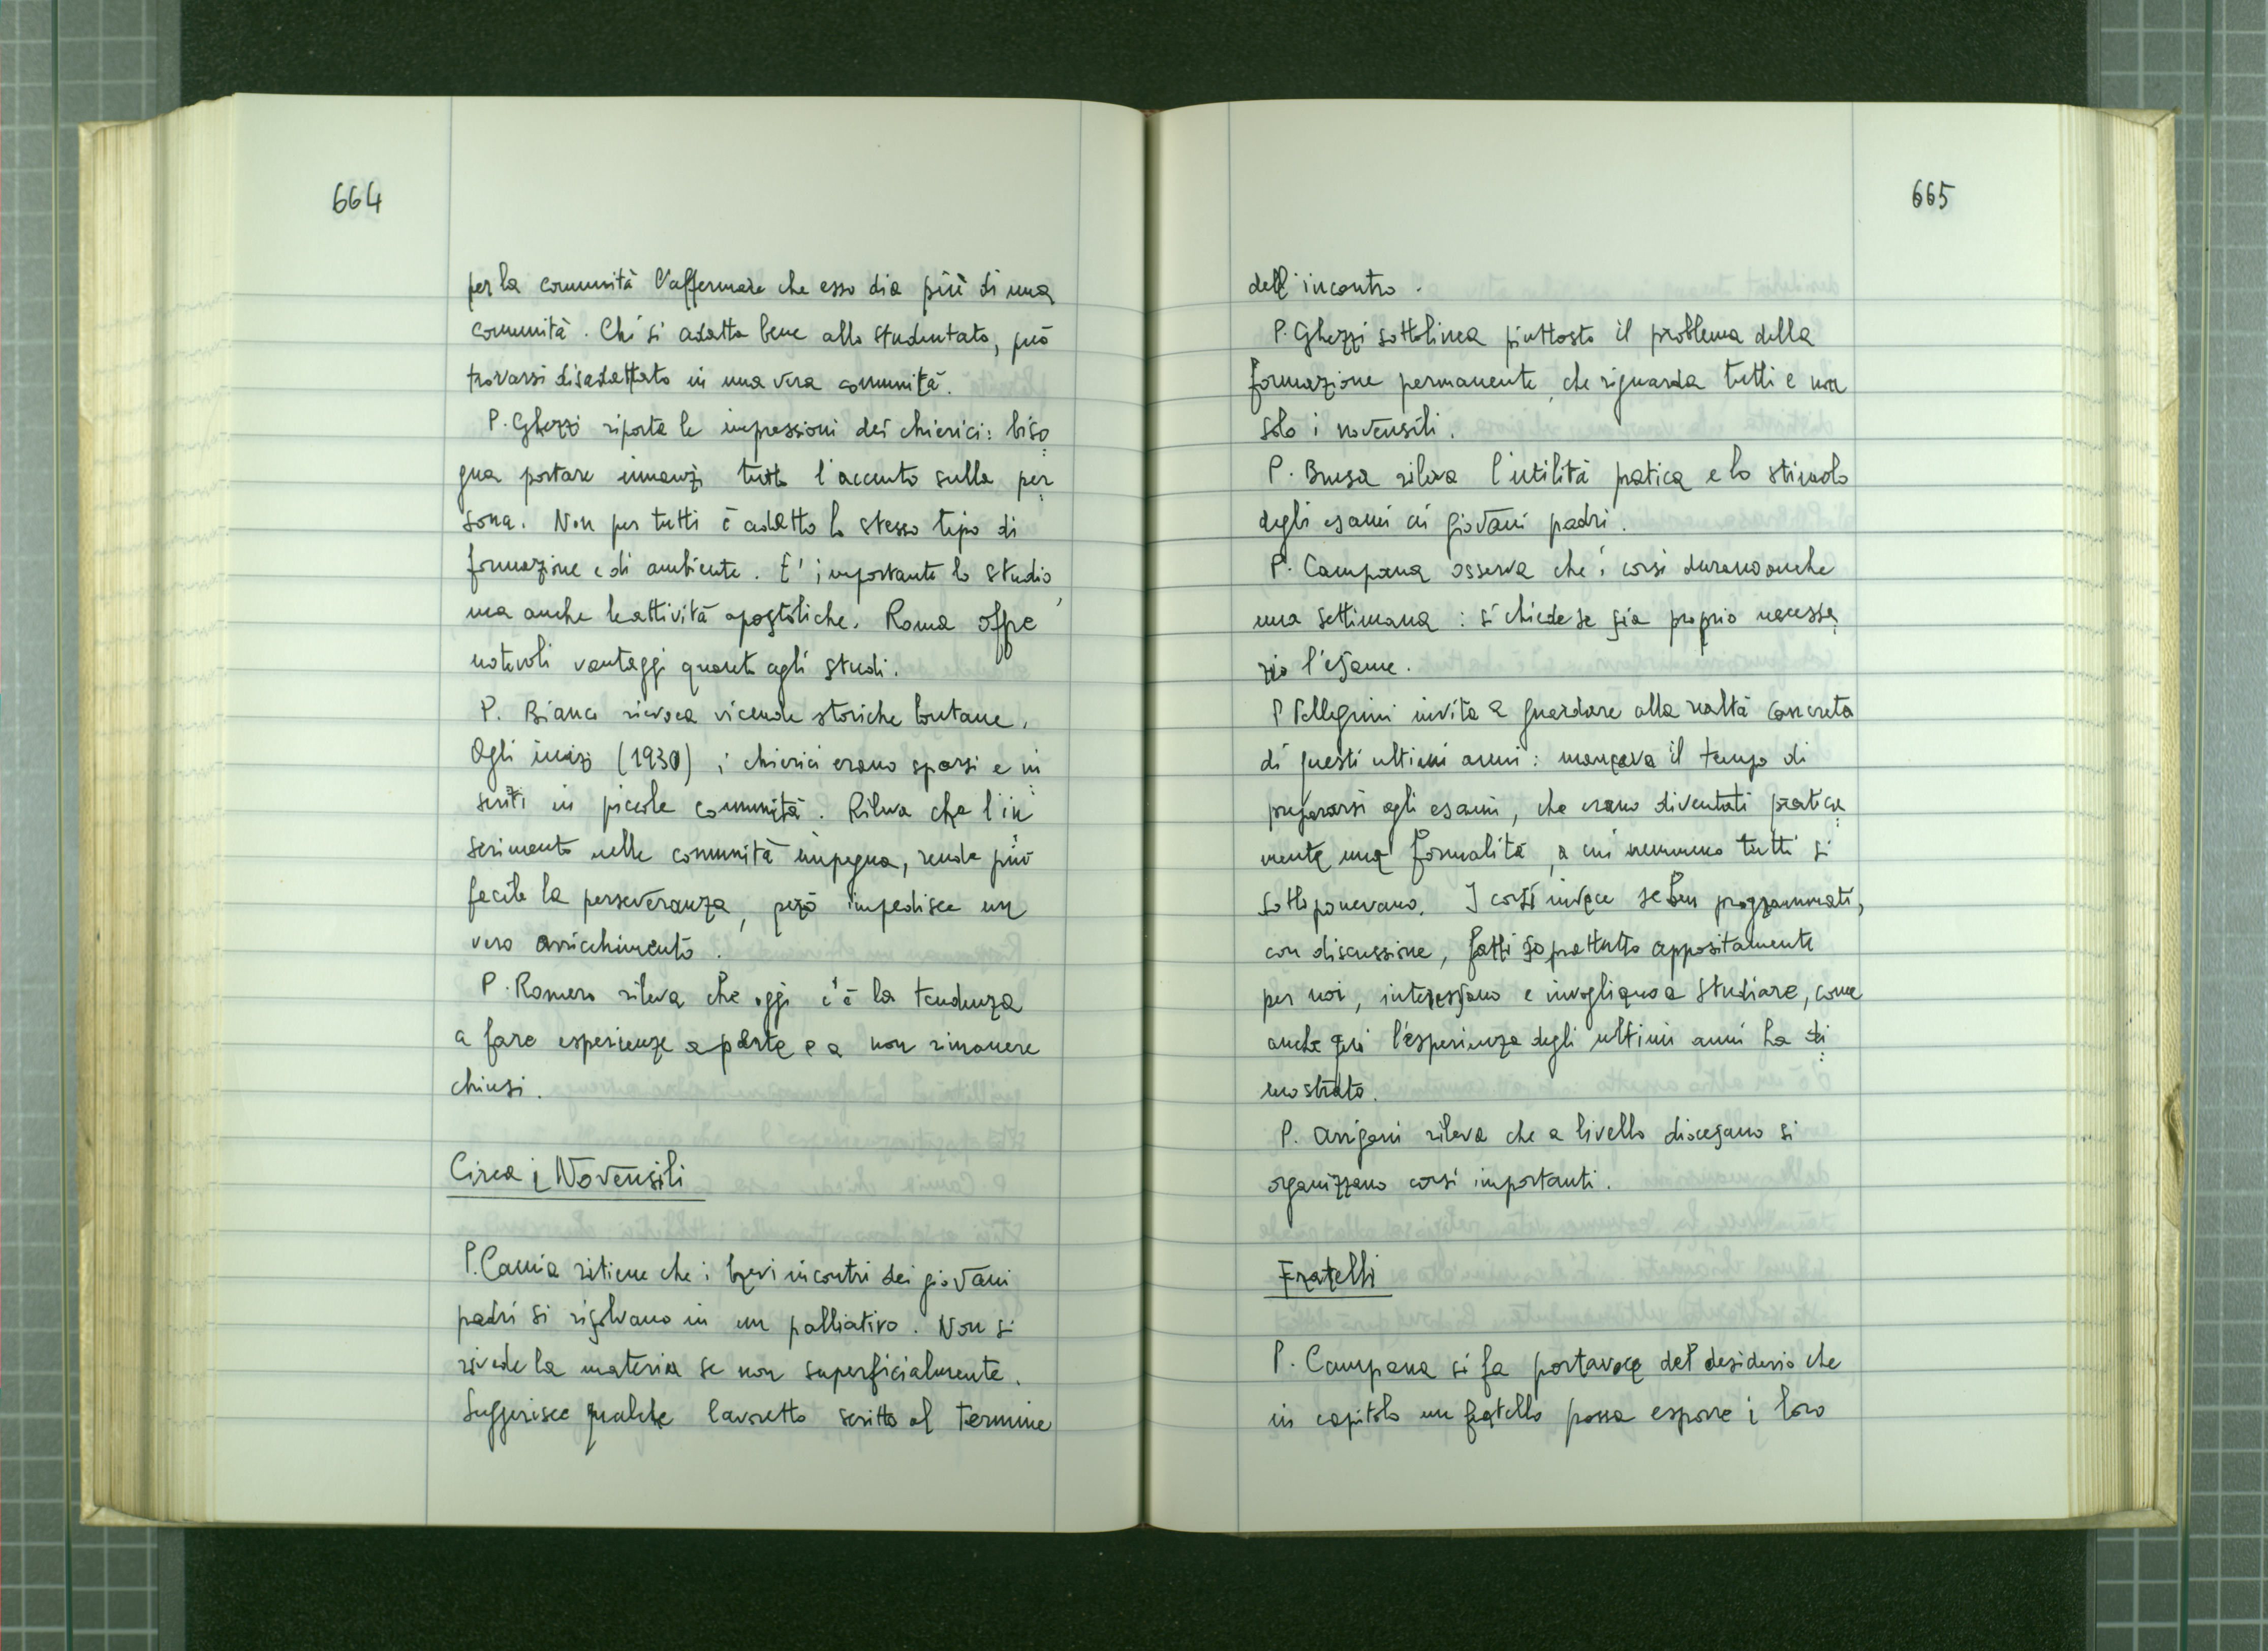 664
per la comunità l'affermare che esso dia più di una
comunità. Chi si adatta bene allo studentato, può
trovarsi disadattato in una vera comunità.
P. Ghezzi riporta le impressioni dei chierici: biso
gna portare innanzi tutto l'accento sulla per
sona. Non per tutti è adatto lo stesso tipo di
formazione e di ambiente. E' importante lo studio,
ma anche le attività apostoliche. Roma offre
notevoli vantaggi quanto agli studi.
P. Bianco rievoca vicende storiche lontane.
Agli inizi (1930) i chierici erano sparsi e in
seriti in piccole comunità. Rileva che l'in
serimento nelle comunità impegna, rende più
facile la perseveranza, però impedisce un
vero arricchimento.
P. Romero rileva che oggi c'è la tendenza
a fare esperienze aperte e a non rimanere
chiusi.
Circa i Novensili
P. Camia ritiene che i brevi incontri dei giovani
padri si risolvano in un palliativo. Non si
rivede la materia se non superficialmente.
Suggerisce qualche lavoretto scritto al termine
665
dell'incontro.
P. Ghezzi sottolinea piuttosto il problema della
formazione permanente, che riguarda tutti e non
solo i novensili.
P. Brusa rileva l'utilità pratica e lo stimolo
degli esami ai giovani padri.
P. Campana osserva che i corsi durano anche
una settimana: si chiede se sia proprio necessa
rio l'esame.
P Pellegrini invita a guardare alla realtà concreta
di questi ultimi anni: mancava il tempo di
prepararsi agli esami, che erano diventati pratica
mente una formalità, a cui nemmeno tutti si
sottoponevano. I corsi invece se ben programmati,
con discussione, fatti soprattutto appositamente
per noi, interessano e invogliano a studiare, come
anche qui l'esperienza degli ultimi anni ha di
mostrato.
P. Arrigoni rileva che a livello diocesano si
organizzano corsi importanti.
Fratelli
P. Campana si fa portavoce del desiderio che
in capitolo un fratello possa esporre i loro